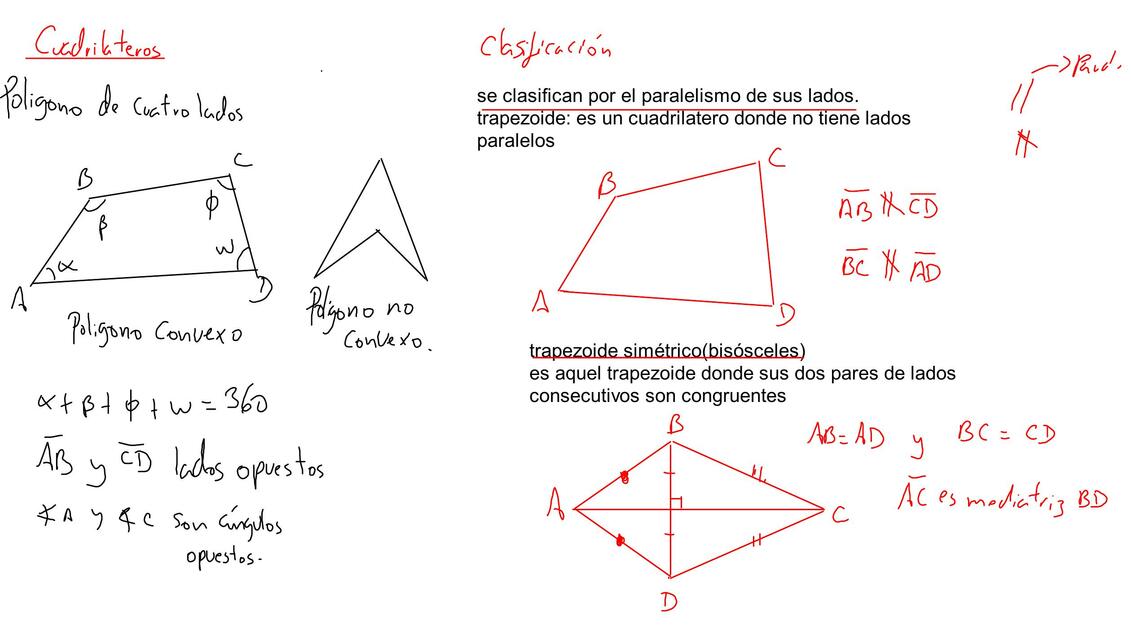 Cuadrilateros
Poligono de cuatro lados
B
C
β
ϕ
α
w
A
D
Poligono Convexo
Polígono no
Convexo.
α + β + ϕ + w = 360
A̅B̅ y C̅D̅ lados opuestos
∢ A y ∢ C son ángulos
opuestos.
Clasificación
se clasifican por el paralelismo de sus lados.
trapezoide: es un cuadrilatero donde no tiene lados
paralelos
// → Paral.
∦
B
C
A
D
A̅B̅ ∦ C̅D̅
B̅C̅ ∦ A̅D̅
trapezoide simétrico(bisósceles)
es aquel trapezoide donde sus dos pares de lados
consecutivos son congruentes
B
A
C
D
AB = AD y BC = CD
A̅C̅ es mediatriz BD